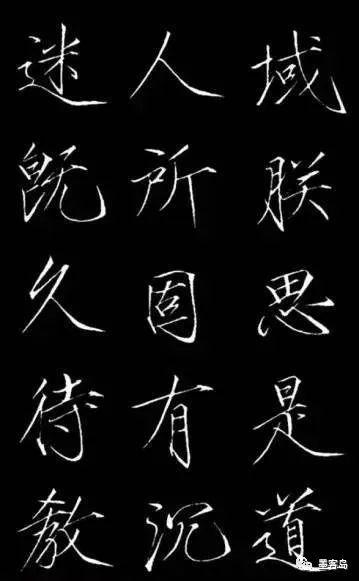 域朕思是道
人所固有沉
迷既久待教
墨客岛